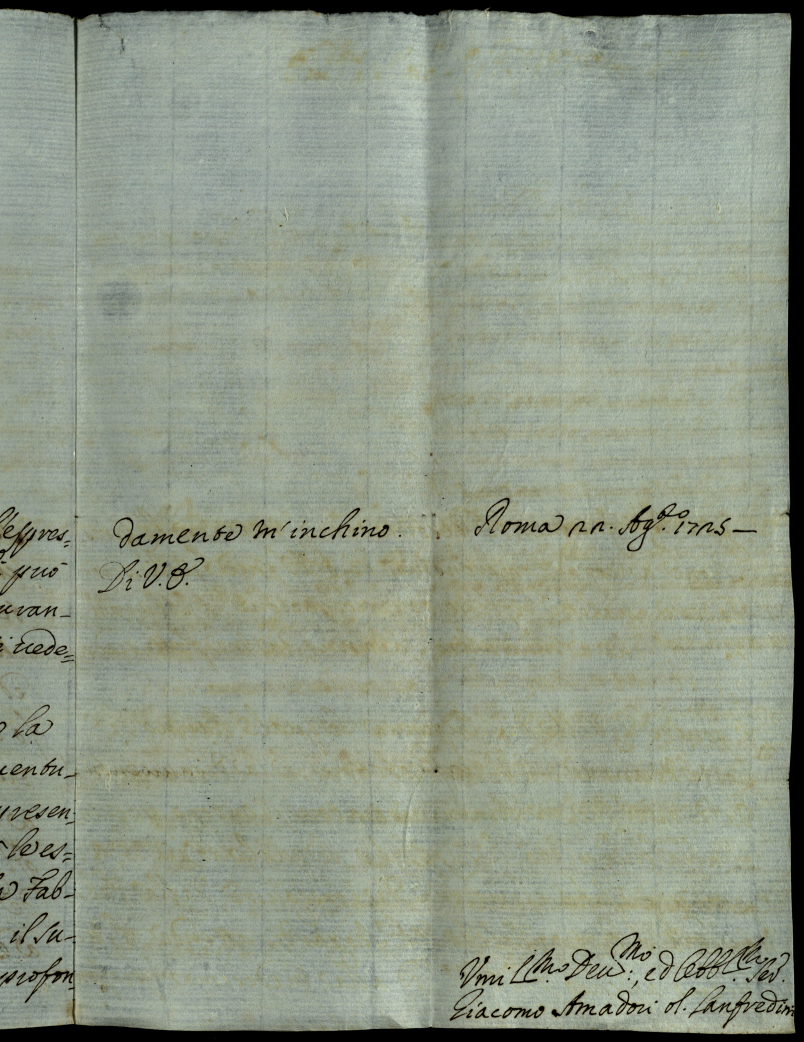 l'espres=
può
uran_
i vede=
la
uentu_
presen
le es=
Fab=
il su=
profon
damente m'inchino. Roma 22. Ag.to 1725 —
Di V. S.
Umil.mo Deu.mo, ed Obbl.mo Ser.
Giacomo Amadori ol. Lanfredin